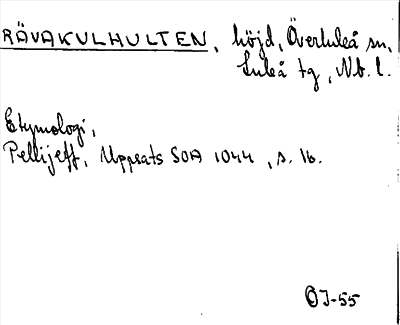 RÄVAKULHULTEN, höjd, Överluleå sn,
Luleå tg, Nb. l.
Etymologi,
Pellijeff, Uppsats SOA 1044, s. 16.
OJ-55